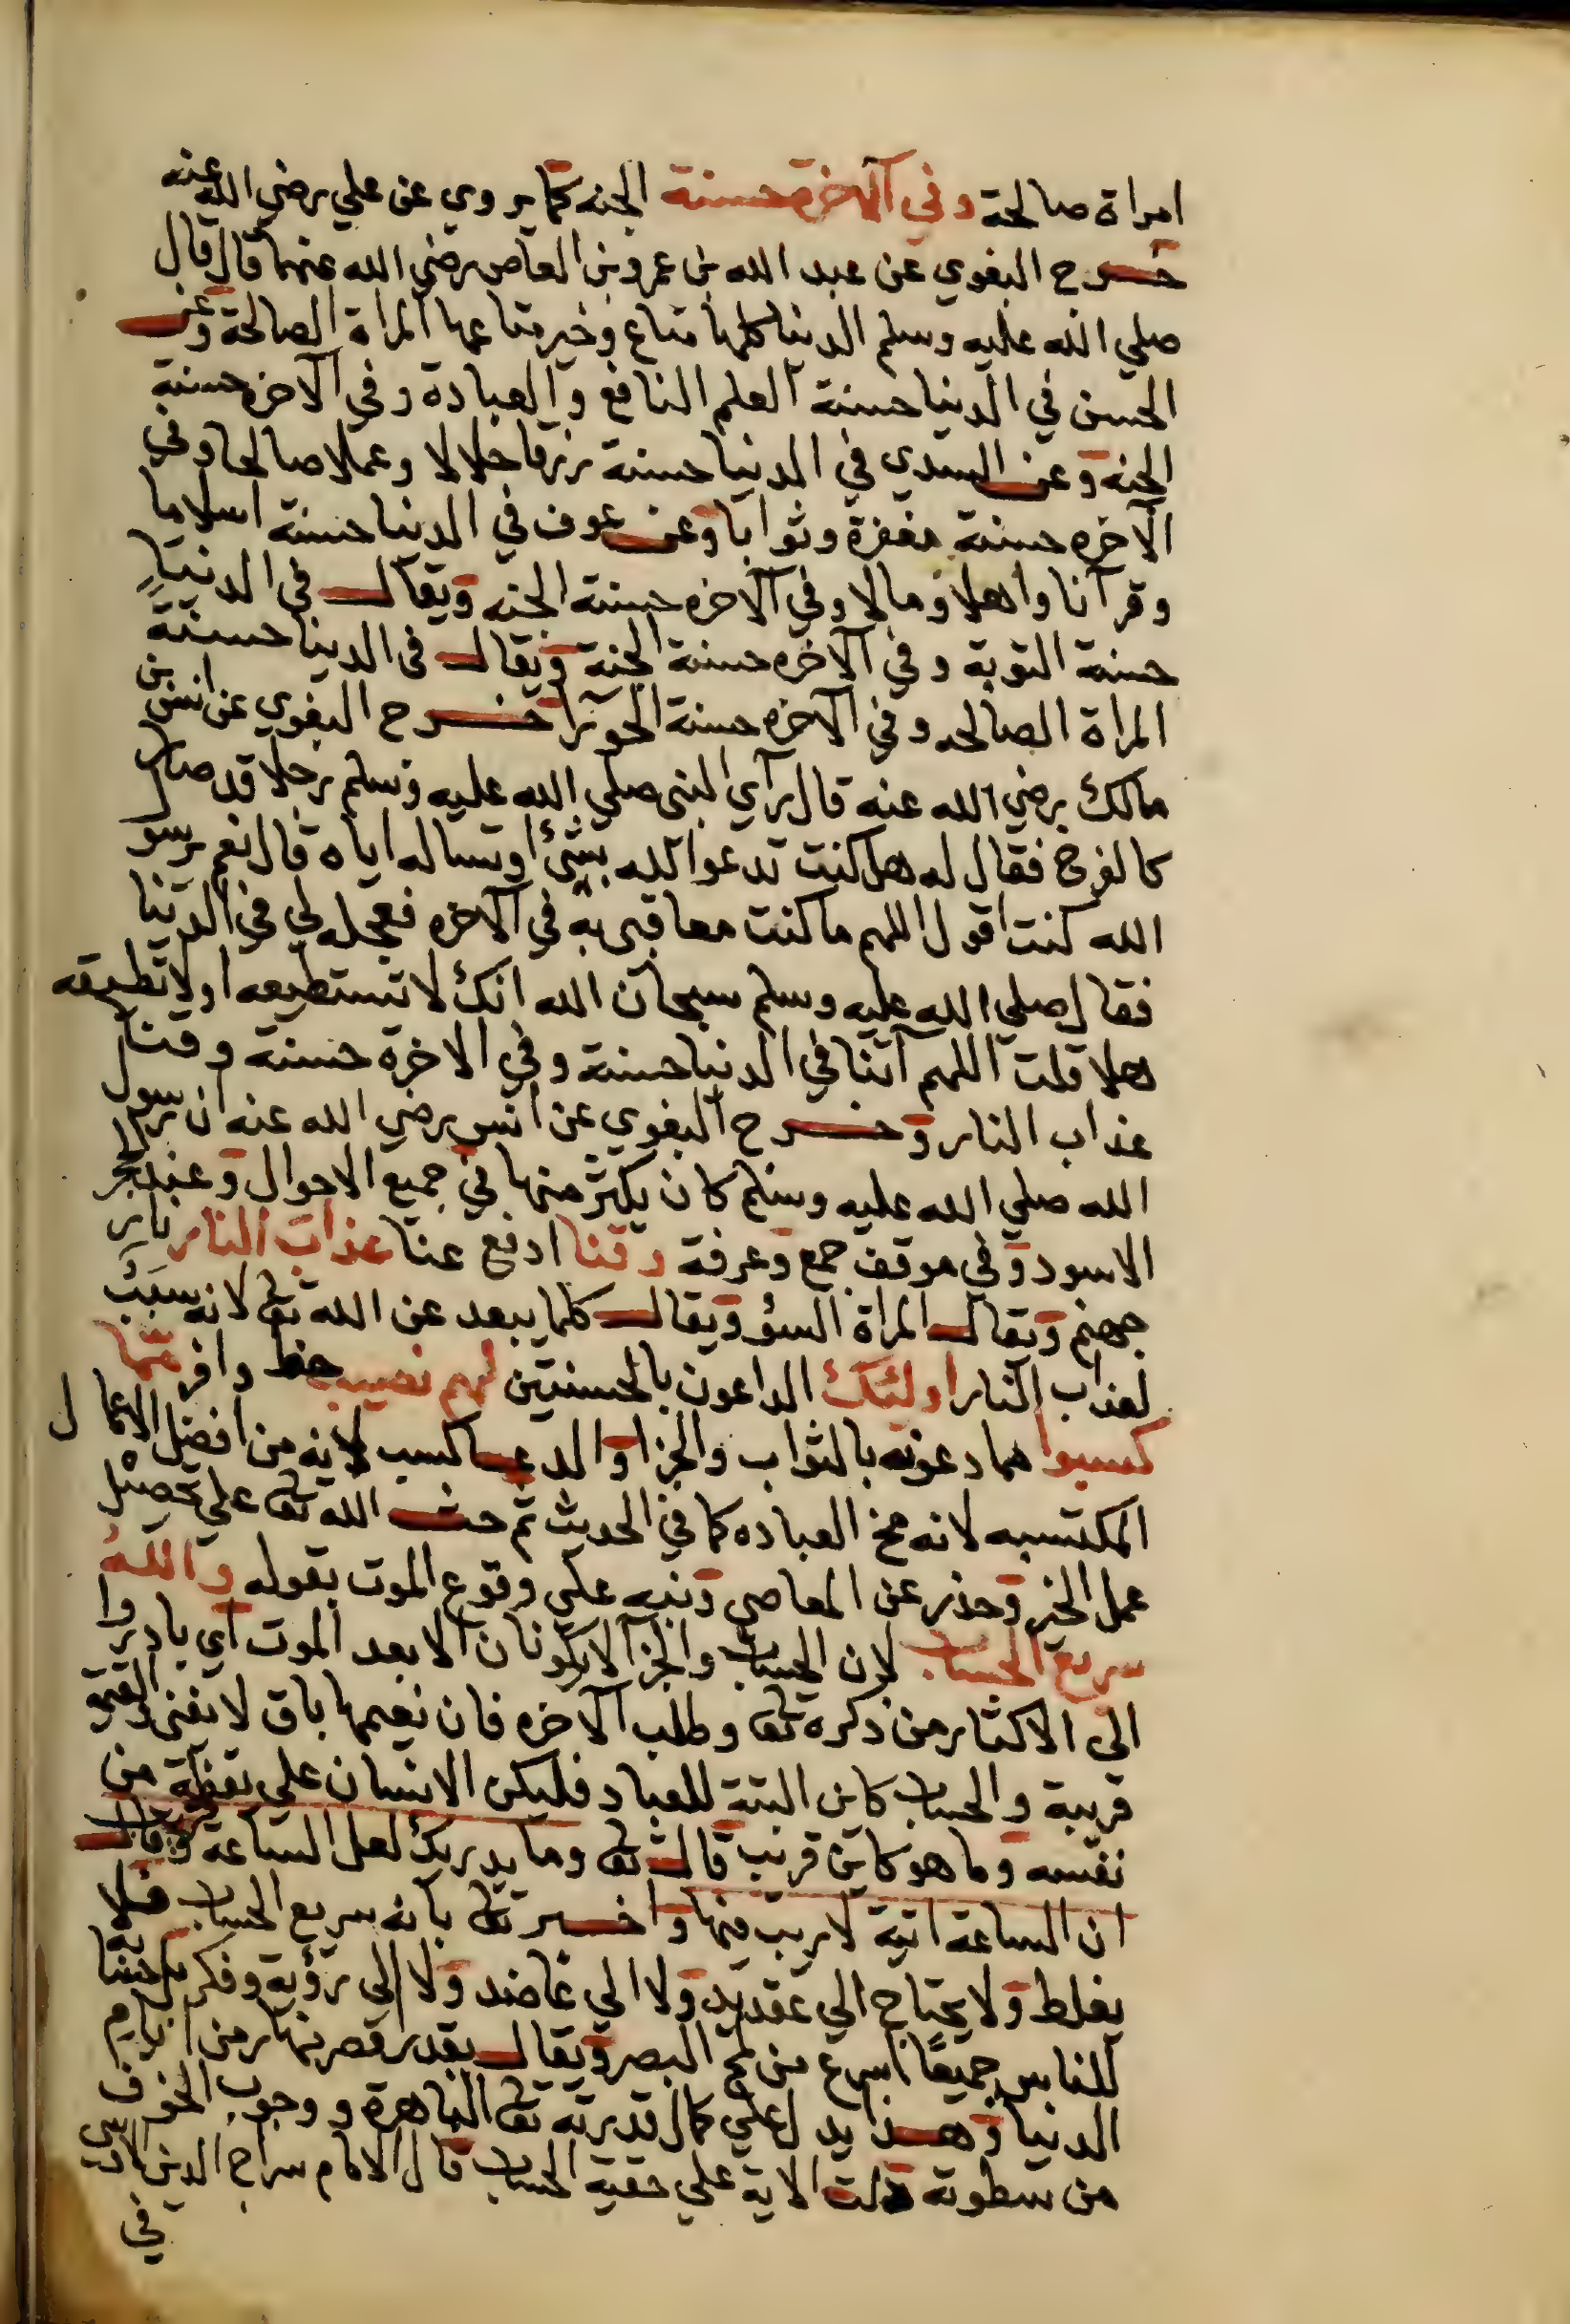 امراة صالحة وفي الآخرة حسنة الجنه كما يروي عن علي رضي الله عنه
خرج البغوي عن عبد الله بن عمرو بن العاص رضي الله عنهما قال قال
صلي الله عليه وسلم الدنيا كلها متاع وخير متاعها المراة الصالحة وعن
الحسن في الدنيا حسنة العلم النافع والعبادة وفي الآخره حسنة
الجنه وعن السدي في الدنيا حسنة رزقا حلالا وعملا صالحا وفي
الآخره حسنة مغفرة وثوابا وعن عوف في الدنيا حسنة اسلاما
وقرآنا واهلا ومالا وفي الآخره حسنة الجنه ويقال في الدنيا
حسنة التوبة وفي الآخره حسنة الجنة ويقال في الدنيا حسنة
المراة الصالحه وفي الآخره حسنة الحورآ خرج البغوي عن انس بن
مالك رضي الله عنه قال رآي النبي صلي الله عليه وسلم رجلا قد صار
كالفرخ فقال له هل كنت تدعوا الله بشئ او تساله اياه قال نعم يرسول
الله كنت اقول اللهم ما كنت معاقبي به في الآخره فعجله لي في الدنيا
فقال صلي الله عليه وسلم سبحان الله انك لا تستطيعه اولا تطيقه
هلا قلت اللهم آتنا في الدنيا حسنة وفي الاخرة حسنة وقنا
عذاب النار وخرج البغوي عن انس رضي الله عنه ان رسول
الله صلي الله عليه وسلم كان يكثر منها في جميع الاحوال وعند الحجر
الاسود وفي موقف جمع وعرفة وقنا ادفع عنا عذاب النار نار
جهنم ويقال المراة السؤ ويقال كلما يبعد عن الله تعالى لانه سبب
لعذاب النار اولئك الداعون بالحسنتين لهم نصيب حظ وافر مما
كسبوا مما دعو به بالثواب والجزا والدعا كسب لانه من افضل الاعمال
المكتسبه لانه مخ العباده كما في الحديث ثم حث الله تعالى علي تحصيل
عمل الخير وحذر عن المعاصي ونبه علي وقوع الموت بقوله والله
سريع الحساب لان الحساب والجزآ لا يكونان الا بعد الموت اي بادروا
الي الاكثار من ذكره تعالى وطلب الآخره فان نعيمها باق لا يفني والقيمة
قريبة والحساب كاين البتة للعباد فليكن الانسان علي يقظة من
نفسه وما هو كاين قريب قال تعالى وما يدريك لعل الساعة قريب وقال
ان الساعة اتية لا ريب فيها واخبر تعالى بانه سريع الحساب فلا
يغلط ولا يحتاج الي عقد يد ولا الي عاضد ولا الي رؤية وفكر حسابه
للناس جميعًا اسرع من لمح البصر ويقال بقدر قصر نهار من ايام
الدنيا وهذا يدل علي كمال قدرته تعالى الباهرة ووجوب الخوف
من سطوته دلت الاية علي حقية الحساب قال الامام سراج الدين
في